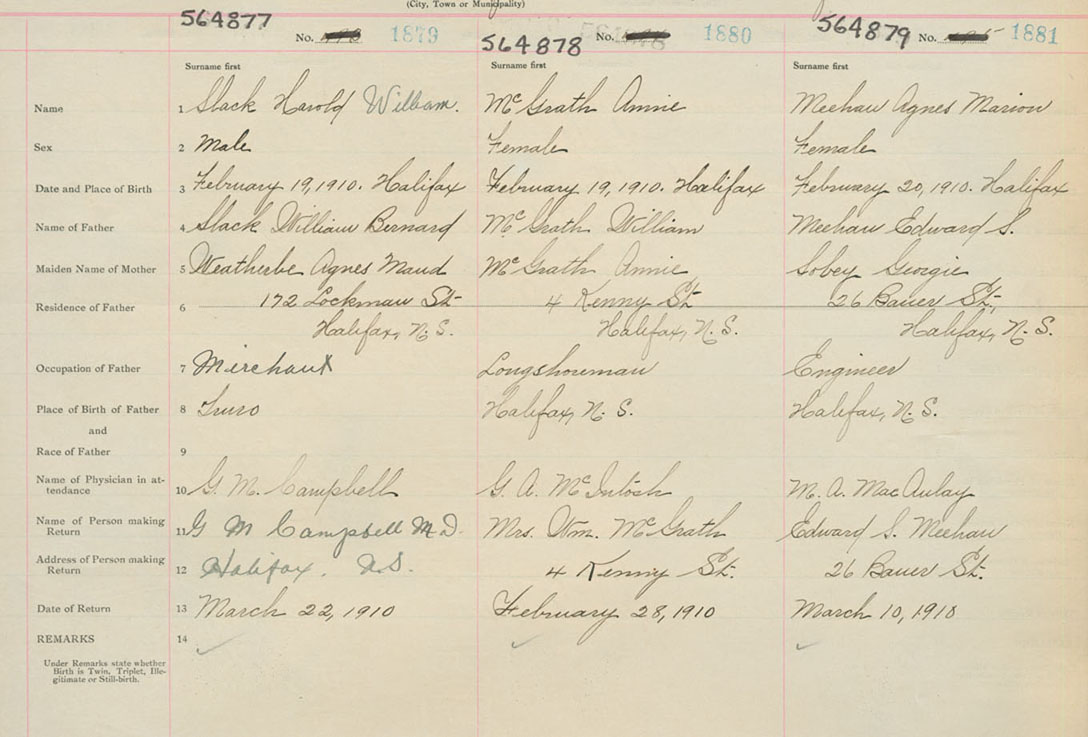 (City, Town or Municipality)
564877 No. 1879 564878 No. 1880 564879 No. 1881
Surname first Surname first Surname first
Name 1 Slack Harold William. McGrath Annie Meehan Agnes Marion
Sex 2 Male Female Female
Date and Place of Birth 3 February 19, 1910. Halifax February 19, 1910. Halifax February 20, 1910. Halifax
Name of Father 4 Slack William Bernard McGrath William Meehan Edward S.
Maiden Name of Mother 5 Weatherbe Agnes Maud McGrath Annie Sobey Georgie
Residence of Father 6 172 Lockman St 4 Kenny St 26 Bauer St,
Halifax, N. S. Halifax, N. S. Halifax, N. S.
Occupation of Father 7 Merchant Longshoreman Engineer
Place of Birth of Father 8 Truro Halifax, N. S. Halifax, N. S.
and
Race of Father 9
Name of Physician in at-
tendance 10 G. M. Campbell G. A. McIntosh M. A. MacAulay
Name of Person making
Return 11 G M Campbell M.D. Mrs. Wm. McGrath Edward S. Meehan
Address of Person making
Return 12 Halifax. N.S. 4 Kenny St. 26 Bauer St.
Date of Return 13 March 22, 1910 February 28, 1910 March 10, 1910
REMARKS 14
Under Remarks state whether
Birth is Twin, Triplet, Ille-
gitimate or Still-birth.